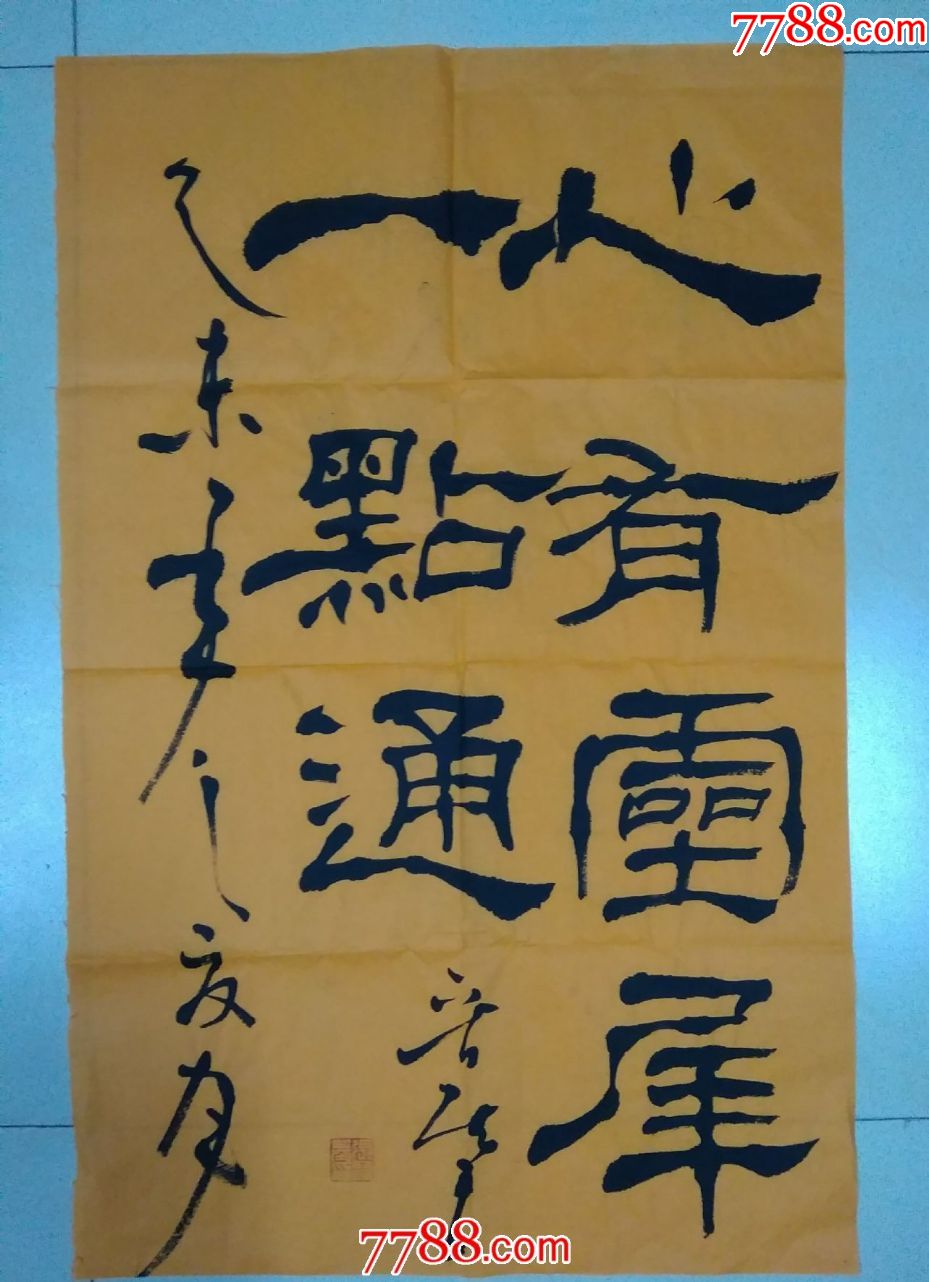 7788.com
心有靈犀
一點通
乙未年之夏月
7788.com